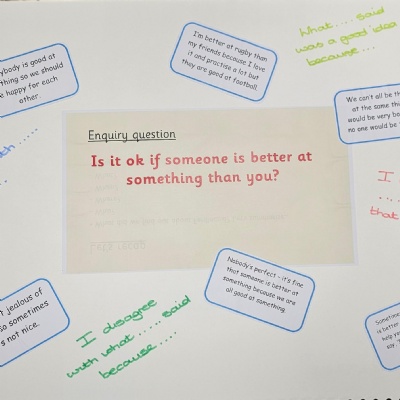 I'm better at rugby than
my friends because I love
it and practise a lot but
they are good at football.
What .... said
was a good idea
because...
ybody is good at
thing so we should
e happy for each
other.
We can't all be th
at the same thi
would be very bo
no one would be
Enquiry question
Is it ok if someone is better at
something than you?
I
....
that
Nobody's perfect - it's fine
that someone is better at
something because we are
all good at something.
t jealous of
so sometimes
s not nice.
I disagree
with what ..... said
because ....
Sometime
is better
help yo
say.